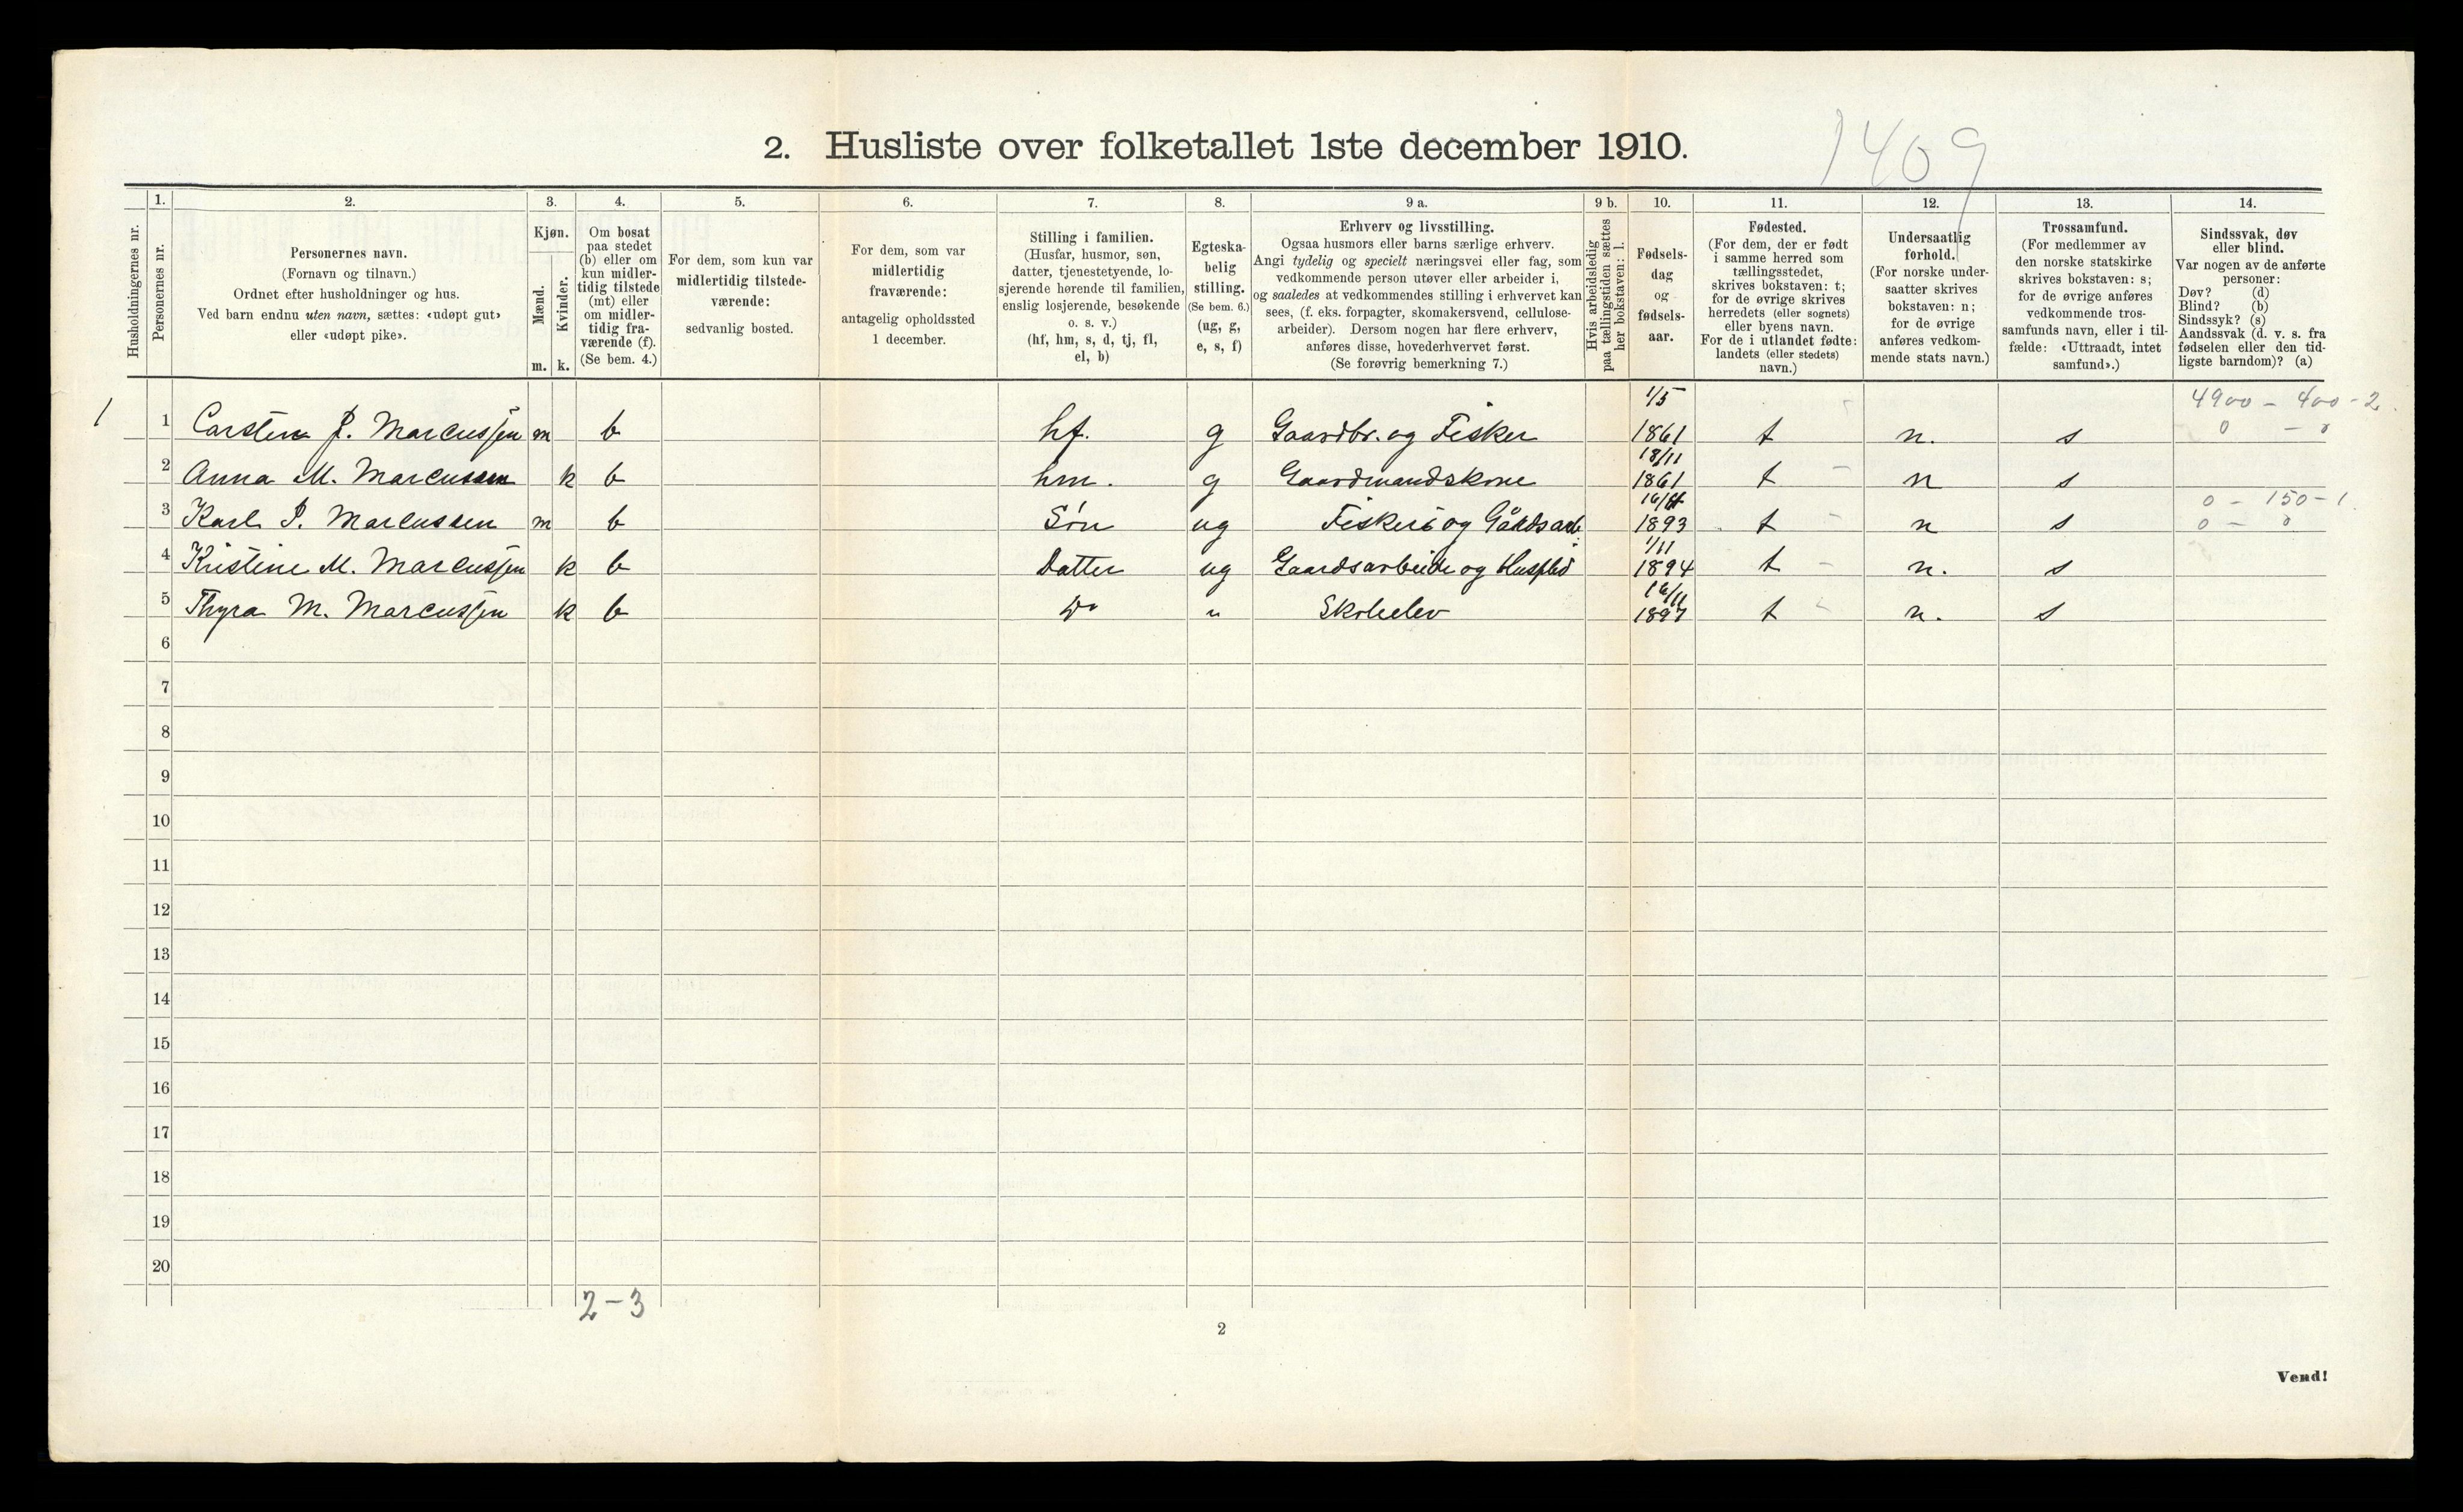 1409
2. Husliste over folketallet 1ste december 1910.
Husholdningernes nr.
1.
Personernes nr.
2.
Personernes navn.
(Fornavn og tilnavn.)
Ordnet efter husholdninger og hus.
Ved barn endnu uten navn, sættes: «udøpt gut»
eller «udøpt pike».
3.
Kjøn.
Mænd.
Kvinder.
m. k.
4.
Om bosat
paa stedet
(b) eller om
kun midler-
tidig tilstede
(mt) eller
om midler-
tidig fra-
værende (f).
(Se bem. 4.)
5.
For dem, som kun var
midlertidig tilstede-
værende:
sedvanlig bosted.
6.
For dem, som var
midlertidig
fraværende:
antagelig opholdssted
1 december.
7.
Stilling i familien.
(Husfar, husmor, søn,
datter, tjenestetyende, lo-
sjerende hørende til familien,
enslig losjerende, besøkende
o. s. v.)
(hf, hm, s, d, tj, fl,
el, b)
8.
Egteska-
belig
stilling.
(Se bem. 6.)
(ug, g,
e, s, f)
9 a.
Erhverv og livsstilling.
Ogsaa husmors eller barns særlige erhverv.
Angi tydelig og specielt næringsvei eller fag, som
vedkommende person utøver eller arbeider i,
og saaledes at vedkommendes stilling i erhvervet kan
sees, (f. eks. forpagter, skomakersvend, cellulose-
arbeider). Dersom nogen har flere erhverv,
anføres disse, hovederhvervet først.
(Se forøvrig bemerkning 7.)
9 b.
Hvis arbeidsledig
paa tællingstiden sættes
her bokstaven: l.
10.
Fødsels-
dag
og
fødsels-
aar.
11.
Fødested.
(For dem, der er født
i samme herred som
tællingsstedet,
skrives bokstaven: t;
for de øvrige skrives
herredets (eller sognets)
eller byens navn.
For de i utlandet fødte:
landets (eller stedets)
navn.)
12.
Undersaatlig
forhold.
(For norske under-
saatter skrives
bokstaven: n;
for de øvrige
anføres vedkom-
mende stats navn.)
13.
Trossamfund.
(For medlemmer av
den norske statskirke
skrives bokstaven: s;
for de øvrige anføres
vedkommende tros-
samfunds navn, eller i til-
fælde: «Uttraadt, intet
samfund».)
14.
Sindssvak, døv
eller blind.
Var nogen av de anførte
personer:
Døv? (d)
Blind? (b)
Sindssyk? (s)
Aandssvak (d. v. s. fra
fødselen eller den tid-
ligste barndom)? (a)
1/5 4900 - 400 - 2
1 1 Carsten J. Marcussen m b hf. g Gaardbr. og Fisker 1861 t n. s 0 - 0
18/11
2 Anna M. Marcussen k b hm. g Gaardmandskone 1861 t n s
0 - 150 - 1
3 Karl P. Marcussen m b Søn ug Fiskeri og Gårdsarb. 1893 t n s 0 - 0
1/11
4 Kristine M. Marcussen k b Datter ug Gaardsarbeide og 1894 t n. s
16/11
5 Thyra M. Marcussen k b Do " Skoleelev 1897 t n. s
6
7
8
9
10
11
12
13
14
15
16
17
18
19
20
2-3
2
Vend!